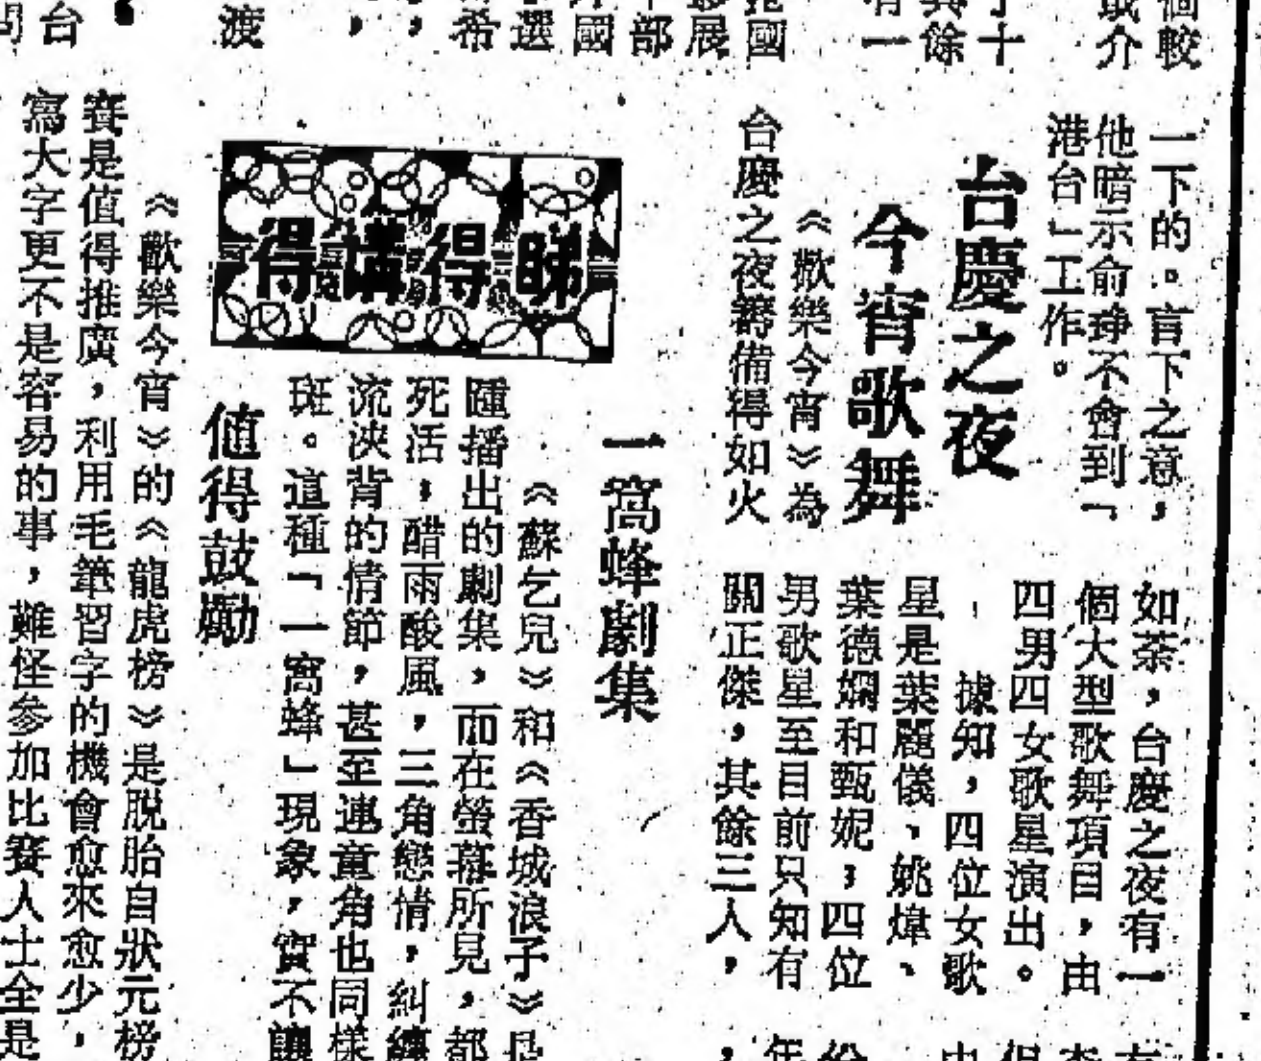 一下的。言下之意，
他暗示俞琤不會到「
港台」工作。
台慶之夜
今宵歌舞
《歡樂今宵》為
台慶之夜籌備得如火
如荼，台慶之夜有一
個大型歌舞項目，由
四男四女歌星演出。
據知，四位女歌
星是葉麗儀、姚煒、
葉德嫻和甄妮；四位
男歌星至目前只知有
關正傑，其餘三人，
睇得講得
一窩蜂劇集
《蘇乞兒》和《香城浪子》是
踵播出的劇集，而在螢幕所見，都
死活；醋雨酸風，三角戀情，糾纏
流浹背的情節，甚至連童角也同樣
斑。這種「一窩蜂」現象，實不讓
值得鼓勵
《歡樂今宵》的《龍虎榜》是脫胎自狀元榜
賽是值得推廣，利用毛筆習字的機會愈來愈少，
寫大字更不是容易的事，難怪參加比賽人士全是